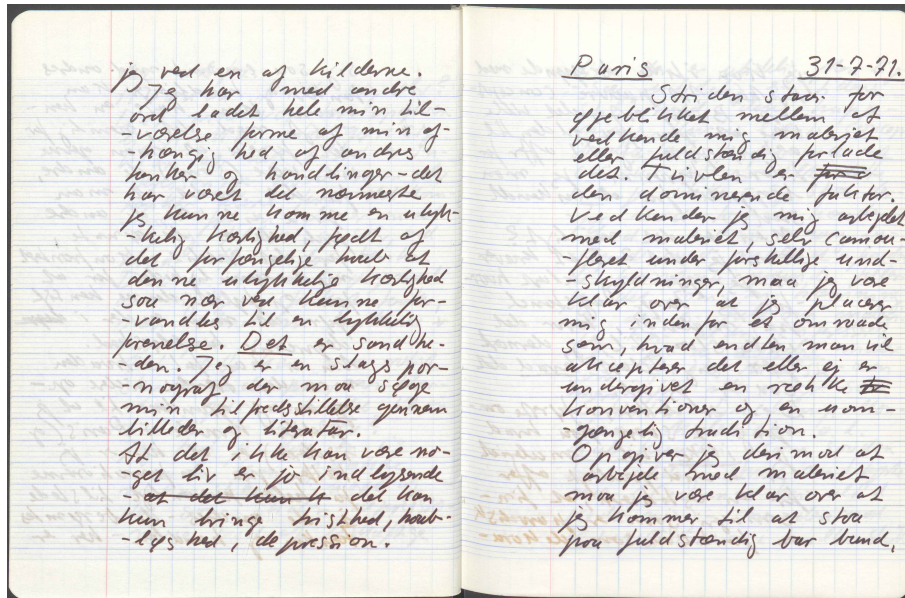 jeg ved en af kilderne.
Jeg har med andre
ord ladet hele min til-
-værelse forme af min af-
-hængighed af andres
tanker og handlinger - det
har været det nærmeste
jeg kunne komme en ulykk-
-kelig kærlighed, født af
det forfængelige haab at
denne ulykkelige kærlighed
saa nær ved kunne for-
-vandles til en lykkelig
forenelse. Det er sandhe-
-den. Jeg er en slags por-
-nograf der maa søge
min tilfredsstillelse gennem
billeder og literatur.
At det ikke kan være no-
-get liv er jo indlysende
- at det kun k det kan
kun bringe tristhed, haab-
-løshed, depression.
Paris 31-7-71.
Striden staar for
øjeblikket mellem at
vedkende mig maleriet
eller fuldstændig forlade
det. Tvivlen er
den dominerende faktor.
Vedkender jeg mig arbejdet
med maleriet, selv camou-
-fleret under forskellige und-
-skyldninger, maa jeg være
klar over at jeg placerer
mig indenfor et omraade
som, hvad enten man vil
akcepterer det eller ej er
undergivet en række
konventioner og en uom-
-gængelig tradition.
Opgiver jeg derimod at
arbejde med maleriet
maa jeg være klar over at
jeg kommer til at staa
paa fuldstændig bar bund,